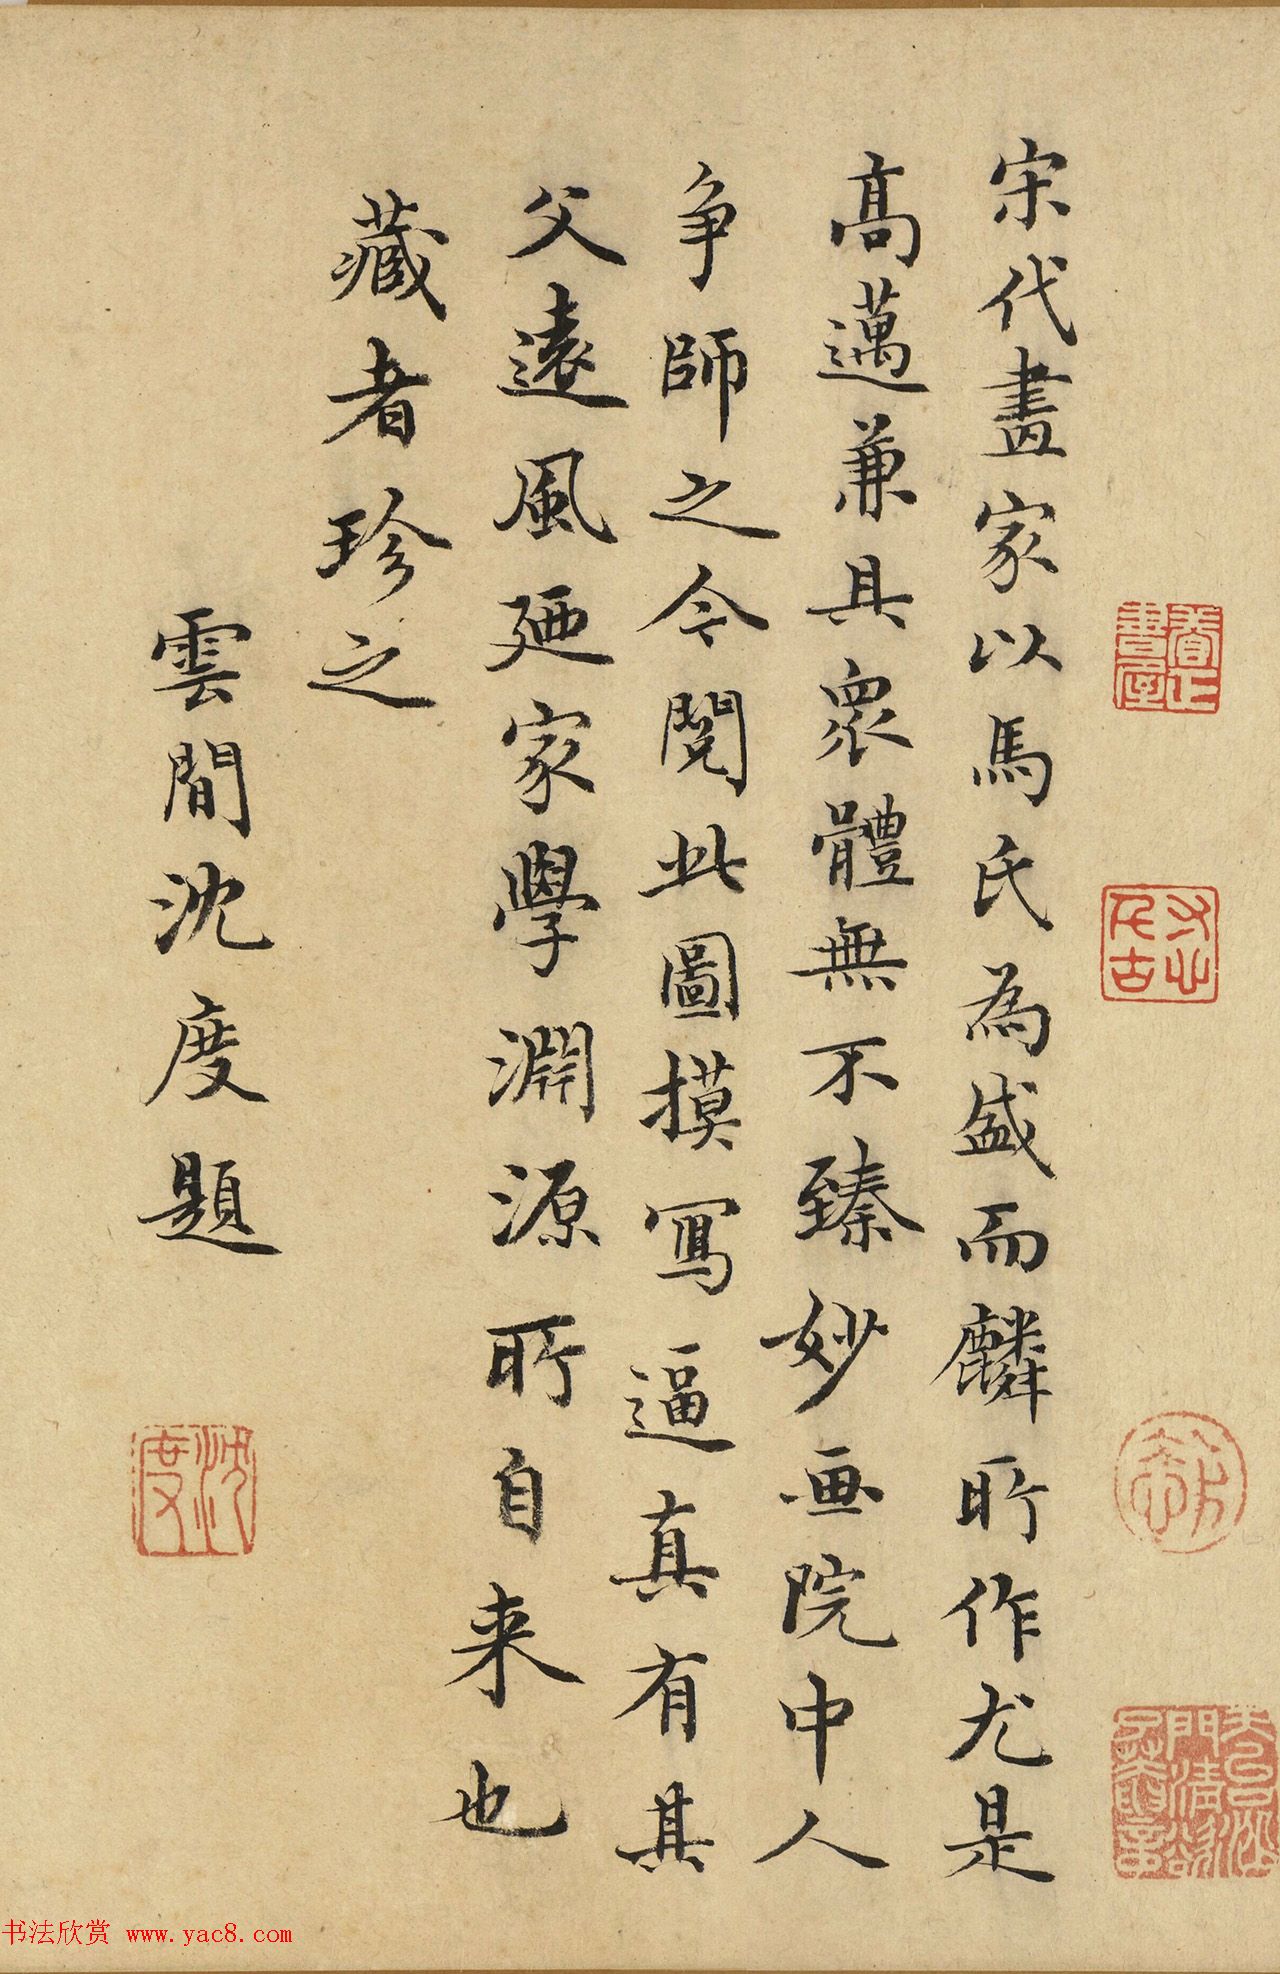 宋代畫家以馬氏為盛而麟所作尤是
高邁兼具衆體無不臻妙画院中人
争師之今閱此圖摸寫逼真有其
父遠風廼家學淵源所自来也
藏者珍之
雲間沈度題
沈度
书法欣赏 www.yac8.com